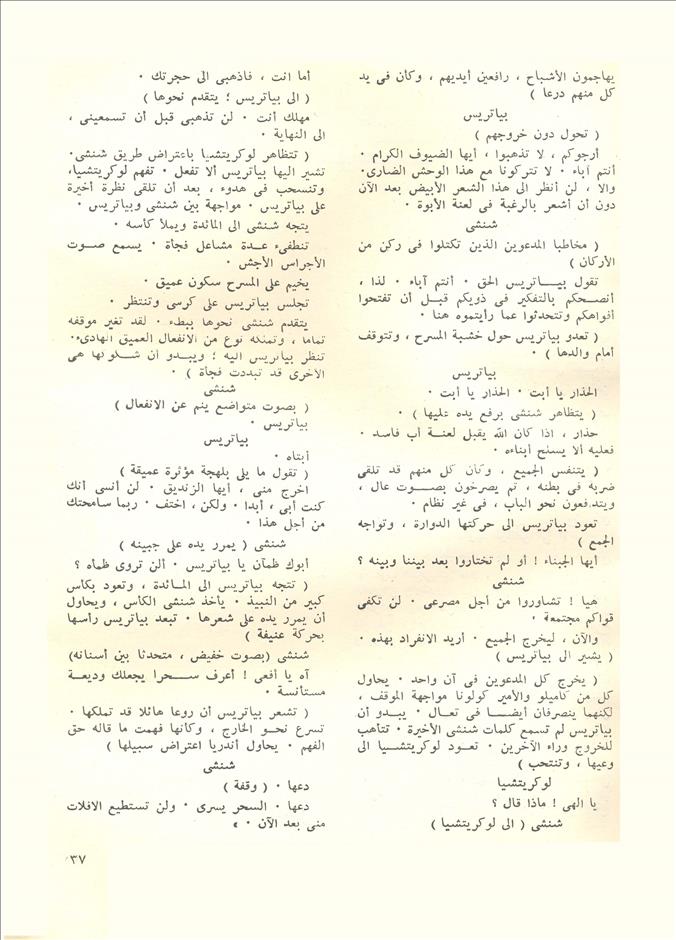 يهاجمون الأشباح ، رافعين أيديهم ، وكأن فى يد
كل منهم درعا )
بياتريس
( تحول دون خروجهم )
أرجوكم ، لا تذهبوا ، أيها الضيوف الكرام ٠
أنتم آباء ٠ لا تتركونا مع هذا الوحش الضارى٠
والا ، لن أنظر الى هذا الشعر الأبيض بعد الآن
دون أن أشعر بالرغبة فى لعنة الأبوة ٠
شنشى
( مخاطبا المدعوين الذين تكتلوا فى ركن من
الأركان )
تقول بيـــاتريس الحق ٠ أنتم آباء ٠ لذا ،
أنصـحكم بالتفكير فى ذويكم قبــل أن تفتحوا
أفواهكم وتتحدثوا عما رأيتموه هنا ٠
( تعدو بياتريس حول خشبة المسرح ، وتتوقف
أمام والدها ) ٠
بياتريس
الحذار يا أبت ٠ الحذار يا أبت ٠
( يتظاهر شنشى برفع يده عليها ) ٠
حذار ، اذا كان الله يقبل لعنــة أب فاسد ٠
فعليه ألا يسلح أبناءه ٠
( يتنفس الجميع ، وكأن كل منهم قد تلقى
ضربه فى بطنه ، ثم يصرخون بصـــوت عال ،
ويتدفعون نحو الباب ، فى غير نظام ٠
تعود بياتريس الى حركتها الدوارة ، وتواجه
الجمع )
أيها الجبناء ! أو لم تختاروا بعد بيننا وبينه ؟
شنشى
هيا ! تشاوروا من أجل مصرعى ٠ لن تكفى
قواكم مجتمعة ٠
والآن ، ليخرج الجميع ٠ أريد الانفراد بهذه ٠
( يشير الى بياتريس )
( يخرج كل المدعوين فى آن واحد ٠ يحاول
كل من كاميلو والأمير كولونا مواجهة الموقف ،
لكنهما ينصرفان أيضــا فى تعـال ٠ يبــدو أن
بياتريس لم تسمع كلمات شنشى الأخيرة ٠ تتأهب
للخروج وراء الآخرين ٠ تعــود لوكريتشــيا الى
وعيها ، وتنتحب )
لوكريتشيا
يا الهى ! ماذا قال ؟
شنشى ( الى لوكريتشيا )
أما أنت ، فاذهبى الى حجرتك ٠
( الى بياتريس ؛ يتقدم نحوها )
مهلك أنت ٠ لن تذهبى قبل أن تسمعينى ،
الى النهاية ٠
( تتظاهر لوكريتشيا باعتراض طريق شنشى٠
تشير اليها بياتريس ألا تفعل ٠ تفهم لوكريتشيا،
وتنسحب فى هدوء ، بعد أن تلقى نظرة أخيرة
على بياتريس ٠ مواجهة بين شنشى وبياتريس ٠
يتجه شنشى الى المائدة ويملأ كأسه ٠
تنطفىء عــدة مشاعل فجأة ٠ يسمع صــوت
الأجراس الأجش ٠
يخيم على المسرح سكون عميق ٠
تجلس بياتريس على كرسى وتنتظر ٠
يتقدم شنشى نحوها ببطء ٠ لقد تغير موقفه
تماما ، وتملكه نوع من الانفعال العميق الهادىء٠
تنظر بياتريس اليه ؛ ويبــدو أن شــكوكها هى
الأخرى قد تبددت فجأة ) ٠
شنشى
( بصوت متواضع ينم عن الانفعال )
بياتريس ٠
بياتريس
أبتاه ٠
( تقول ما يلى بلهجة مؤثرة عميقة )
اخرج منى ، أيها الزنديق ٠ لن أنسى أنك
كنت أبى ، أبدا ٠ ولكن ، اختف ٠ ربما سامحتك
من أجل هذا ٠
شنشى ( يمرر يده على جبينه )
أبوك ظمآن يا بياتريس ٠ ألن تروى ظمأه ؟
( تتجه بياتريس الى المـائدة ، وتعود بكأس
كبير من النبيذ ٠ يأخذ شنشى الكأس ، ويحاول
أن يمرر يده على شعرها ٠ تبعد بياتريس رأسها
بحركة عنيفة )
شنشى (بصوت خفيض ، متحدثا بين أسنانه)
آه يا أفعى ! أعرف ســحرا يجعلك وديعــة
مستأنسة ٠
( تشعر بياتريس أن روعا هائلا قد تملكها ٠
تسرع نحــو الخارج ، وكأنها فهمت ما قاله حق
الفهم ٠ يحاول أندريا اعتراض سبيلها )
شنشى
دعها ٠ ( وقفة )
دعها ٠ السحر يسرى ٠ ولن تستطيع الافلات
منى بعد الآن ٠ »
٣٧